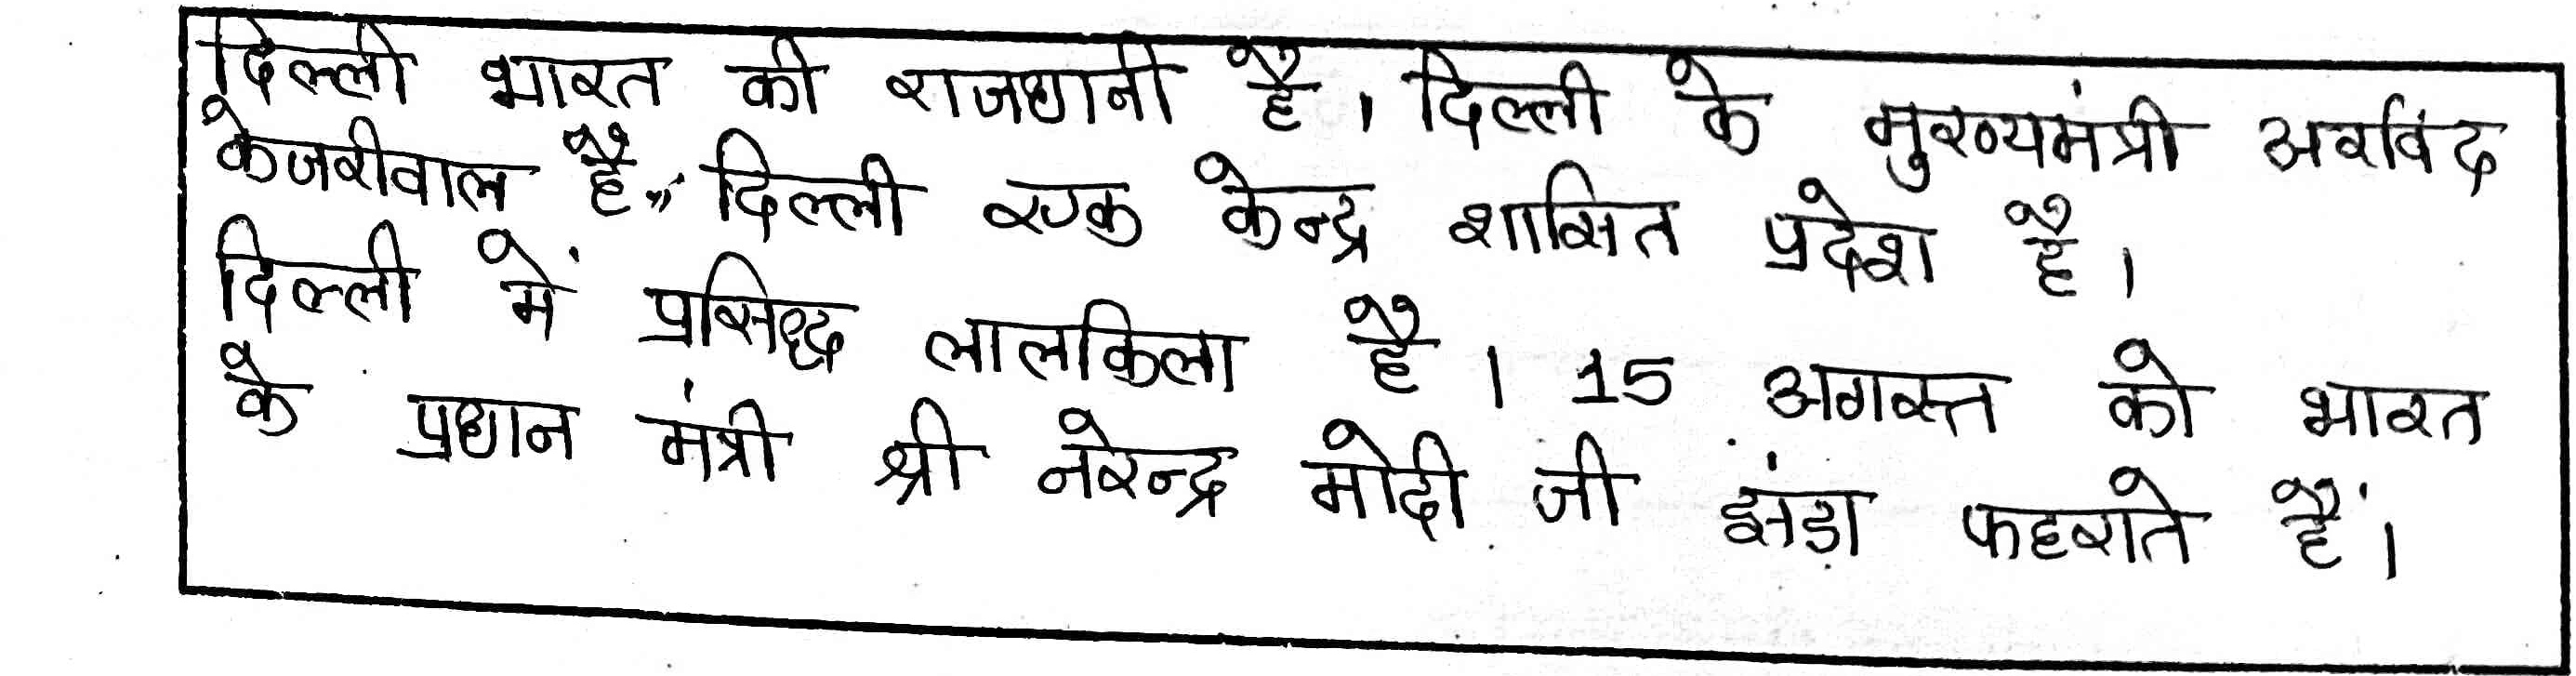 दिल्ली भारत की राजधानी है। दिल्ली के मुख्यमंत्री अरविंद
केजरीवाल है,, दिल्ली एक केन्द्र शासित प्रदेश है।
दिल्ली में प्रसिद्ध लालकिला है। 15 अगस्त को भारत
के प्रधान मंत्री श्री नरेन्द्र मोदी जी झंडा फहराते हैं।